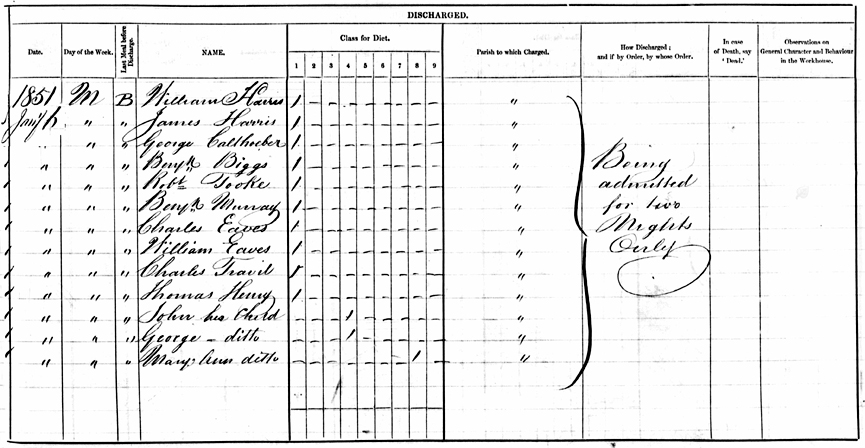 DISCHARGED.
Date. Day of the Week. Last Meal before Discharge. NAME. Class for Diet. Parish to which Charged. How Discharged; and if by Order, by whose Order. In case of Death, say 'Dead.' Observations on General Character and Behaviour in the Workhouse.
1 2 3 4 5 6 7 8 9
1851 M B William Harris 1 - - - - - - - - "
" " James Harris 1 - - - - - - - - "
" " " George 1 - - - - - - - - "
" " " Benjn Biggs 1 - - - - - - - - " Being
" " " Robt Tooke 1 - - - - - - - - " admitted
" " " Benjn Murray 1 - - - - - - - - " for two
" " " Charles Eaves 1 - - - - - - - - " Nights
" " " William Eaves 1 - - - - - - - - " Only
" " " Charles 1 - - - - - - - - "
" " " Thomas Henry 1 - - - - - - - - "
" " " John his Child - - - 1 - - - - - "
" " " George - ditto - - - 1 - - - - - "
" " " Mary Ann ditto - - - - - - - 1 - "